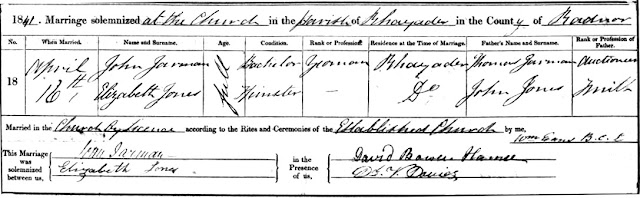 1841. Marriage solemnized at the Church in the parish of Rhayader in the County of Radnor
No. When Married. Name and Surname. Age. Condition. Rank or Profession. Residence at the Time of Marriage. Father's Name and Surname. Rank or Profession of Father.
18 April 16th John Jarman full Bachelor Yeoman Rhayader Thomas Jarman Auctioneer
Elizabeth Jones Spinster — Do John Jones Smith
Married in the Church by License according to the Rites and Ceremonies of the Established Church by me, Wm Evans
This Marriage was solemnized between us, John Jarman in the Presence of us, David Bowen
Elizabeth Jones Davies